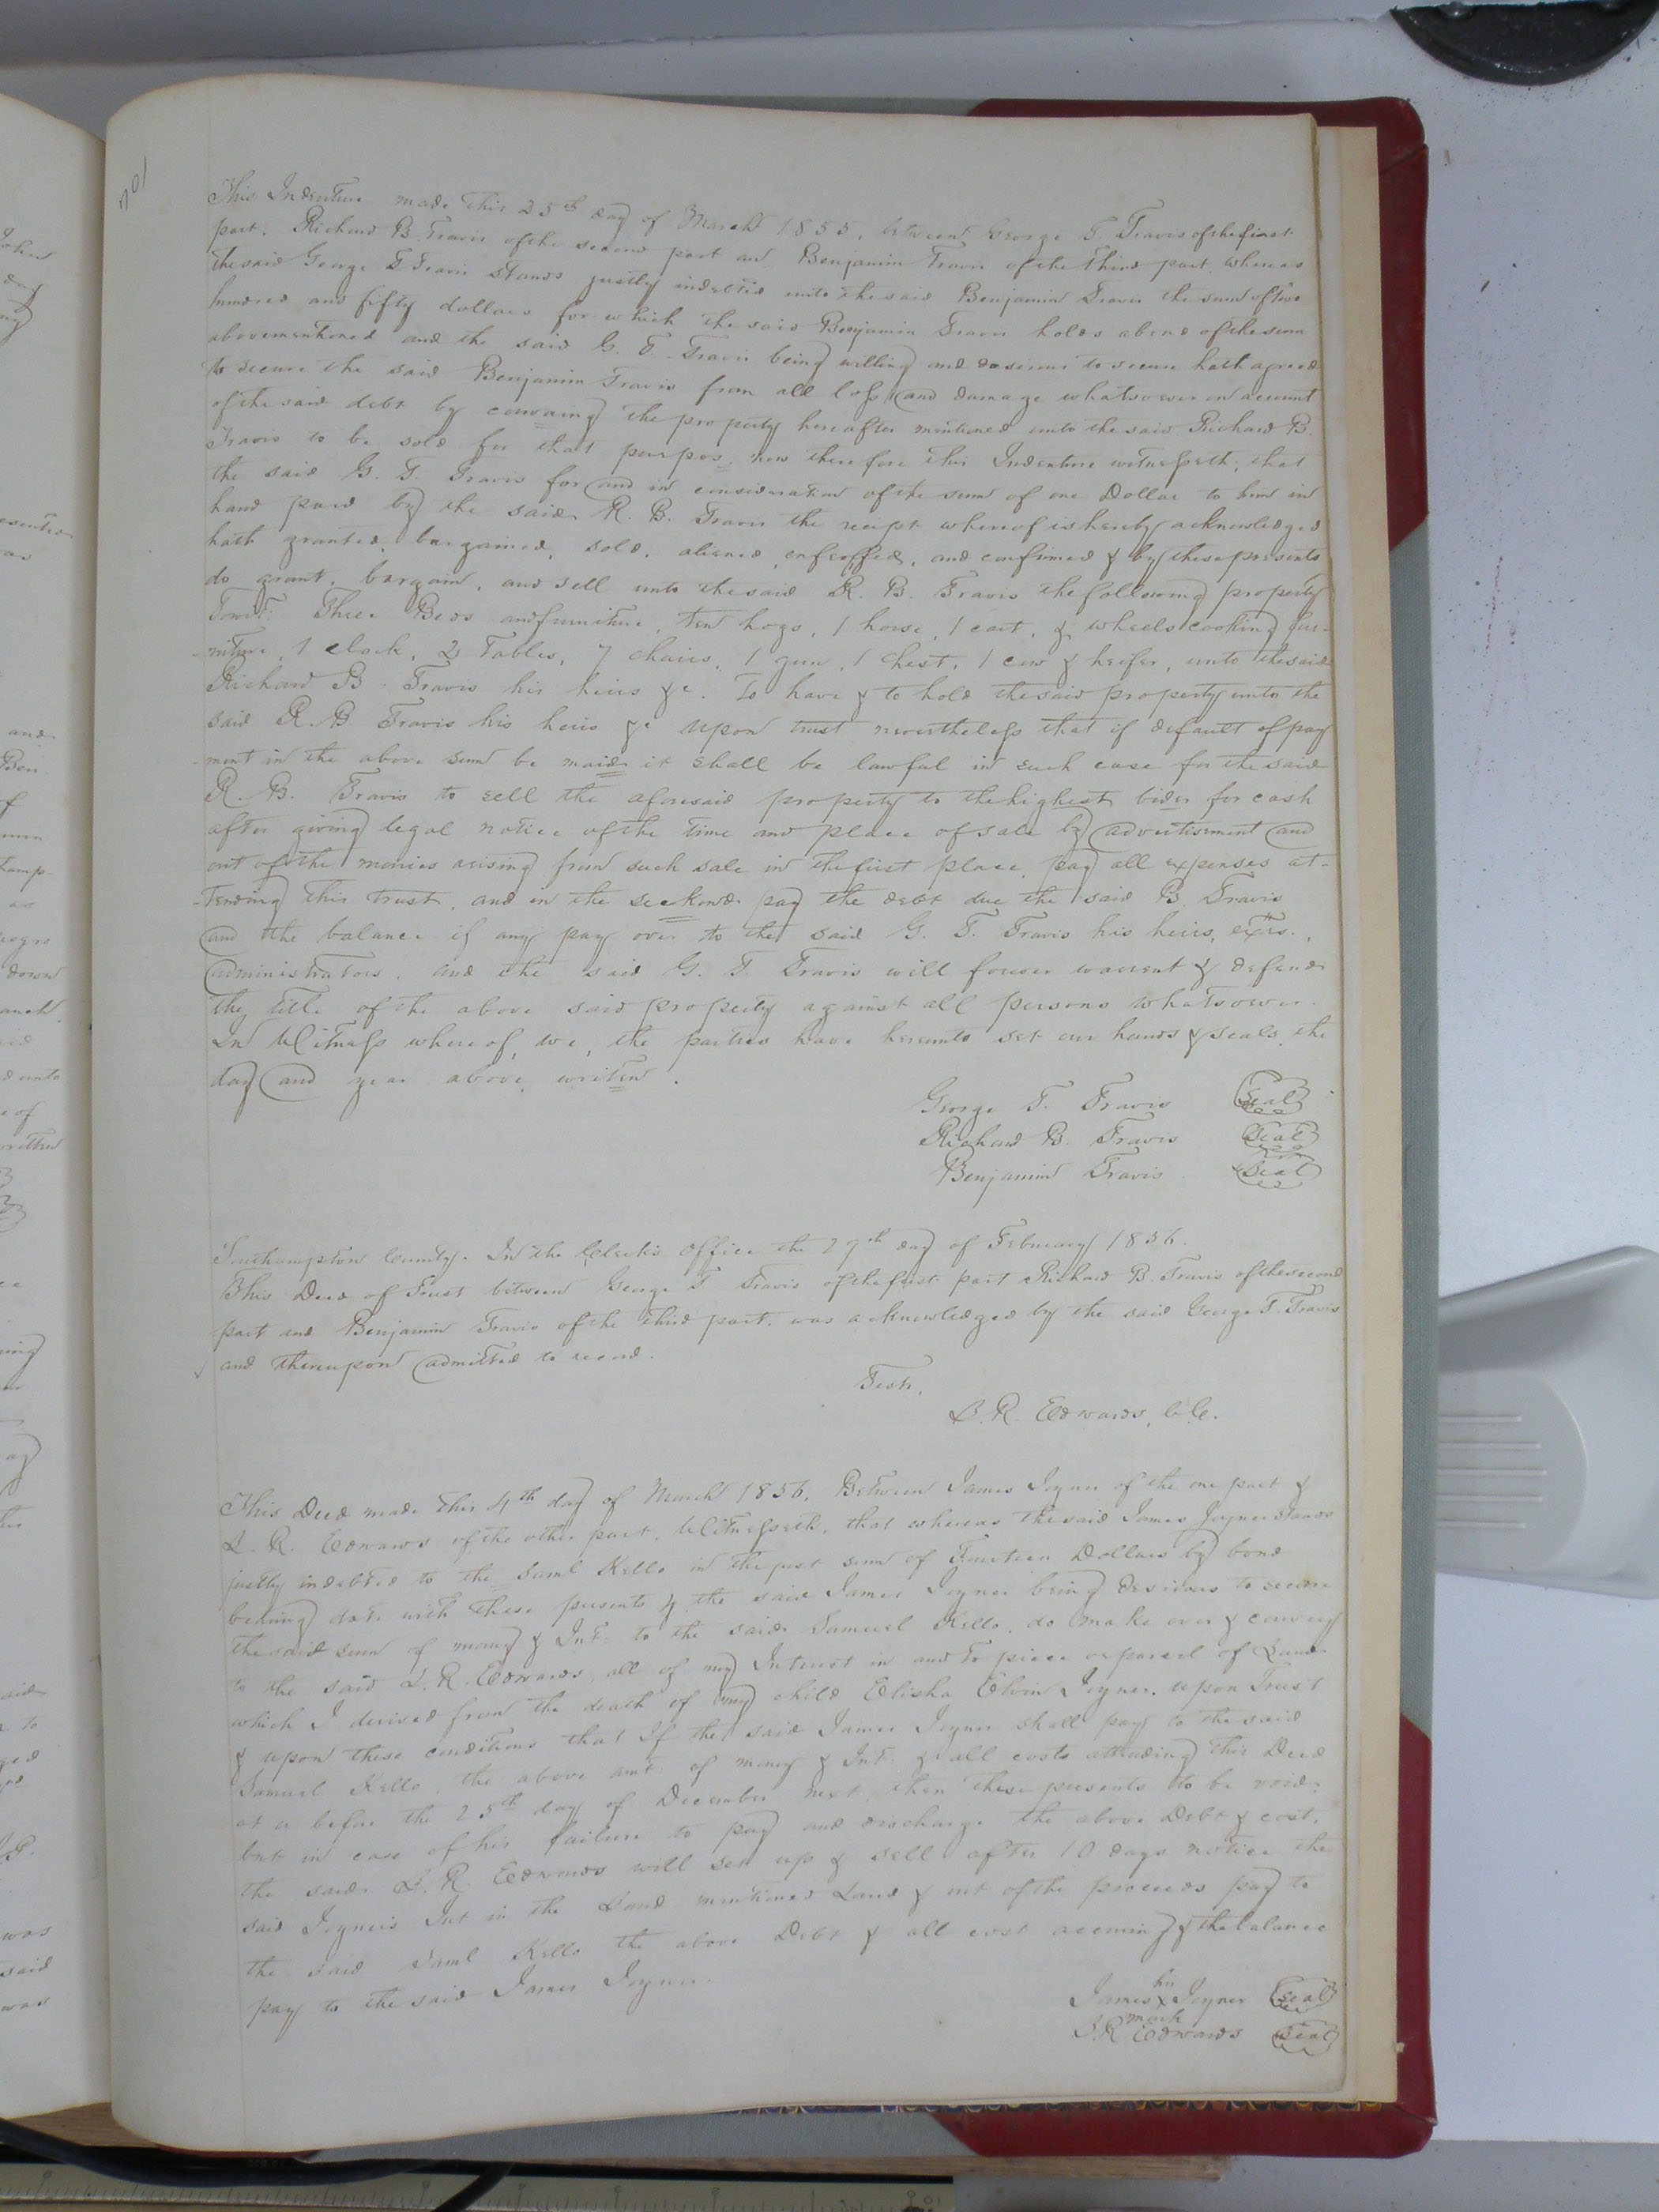 701
This Indenture made this 25th day of March 1855, between George T. Travis of the first
part, Richard B. Travis of the second part and Benjamin Travis of the third part. Whereas
the said George T. Travis stands justly indebted unto the said Benjamin Travis the sum of two
hundred and fifty dollars for which the said Benjamin Travis holds a bond of the sum
abovementioned and the said G. T. Travis being willing and desirous to secure hath agreed
to secure the said Benjamin Travis from all loss and damage whatsoever on account
of the said debt by conveing the property hereafter mentioned unto the said Richard B.
Travis to be sold for that purpos. now therefore this Indenture witnesseth, that
the said G. T. Travis for and in consideration of the sum of one Dollar to him in
hand paid by the said R. B. Travis the receipt whereof is hereby acknowledged
hath granted, bargained, sold, aliened, enfeoffed, and confirmed & by these presents
do grant, bargain, and sell unto the said R. B. Travis the following property
Towit: Three Beds and furniture, ten hogs, 1 horse, 1 cart, & wheels cooking fur-
-niture, 1 clock, 2 Tables, 7 chairs, 1 gun, 1 chest, 1 cow & heifer, unto the said
Richard B. Travis his heirs &c. To have & to hold the said property unto the
said R. B. Travis his heirs &c upon trust nevertheless that if default of pay
-ment in the above sum be maid it shall be lawful in such case for the said
R. B. Travis to sell the aforesaid property to the highest bider for cash
after giving legal notice of the time and place of sale by advertisment and
out of the monies arising from such sale in the first place, pay all expenses at-
-tending this trust, and in the seckond pay the debt due the said B. Travis
and the balance if any pay over to the said G. T. Travis his heirs, extrs.,
administrators. and the said G. T. Travis will forever warrent & defend
the title of the above said property against all persons whatsoever.
In Witness whereof, we, the parties have hereunto set our hands & seals, the
day and year above writen.
George T. Travis Seal
Richard B. Travis Seal
Benjamin Travis Seal
Southampton County. In the Clerks Office the 29th day of February 1856.
This Deed of Trust between George T Travis of the first part Richard B. Travis of the second
part and Benjamin Travis of the third part. was acknowledged by the said George T. Travis
and thereupon admitted to record.
Teste,
L. R. Edwards, C. C.
This Deed made this 4th day of March 1856, Between James Joyner of the one part &
L. R. Edwards of the other part. Witnesseth, that whereas the said James Joyner stands
justly indebted to the Saml Kello in the just sum of Fourteen Dollars by bond
bearing date with these presents & the said James Joyner being desirous to secure
the said sum of money & Int: to the said Samuel Kello, do make over & convey
to the said L. R. Edwards, all of my Interest in and to piece or parcel of Land
which I derived from the death of my child Elisha Elvin Joyner. upon Trust
& upon these conditions that If the said James Joyner shall pay to the said
Samuel Kello, the above amt. of money & Int: & all costs attending this Deed
at or before the 25th day of December next, then these presents to be void;
but in case of his failure to pay and discharge the above Debt & cost,
the said L. R. Edwards will set up & sell after 10 days notice the
said Joyners Int in the Land mentioned Land & out of the proceeds pay to
the said Saml Kello the above Debt & all cost accruing & the balance
pay to the said James Joyner.
his
James x Joyner Seal
mark
L. R Edwards Seal